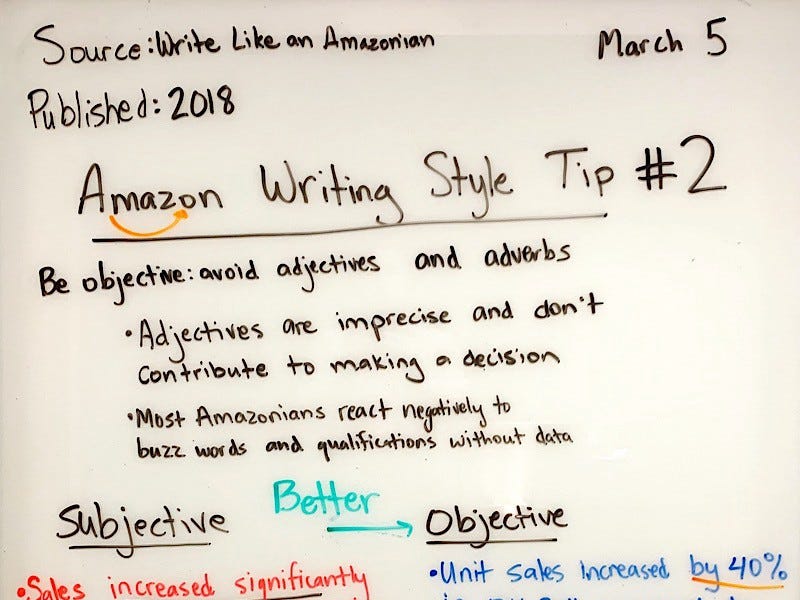 Source: Write Like an Amazonian March 5
Published: 2018
Amazon Writing Style Tip #2
Be objective: avoid adjectives and adverbs
• Adjectives are imprecise and don't
contribute to making a decision
• Most Amazonians react negatively to
buzz words and qualifications without data
Subjective Better Objective
• Sales increased significantly • Unit sales increased by 40%